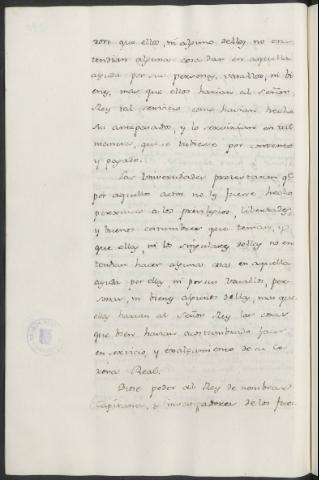 ron que ellos, ni alguno dellos, no en-
tendian alguna cosa dar en aquella
ayuda por sus personas, vasallos, ni bi
enes, mas que ellos harian al Señor
Rey tal servicio como havian hecho
sus antepasados, y lo servirian en tal
manera, que se tubiese por contento
y pagado.
Las Universidades protestaron q.e
por aquellos actos no les fuese hecho
perjuicio a los privilegios, libertades,
y buenas costumbres que tenian, y
que ellas, ni los singulares dellas no en
tendian hacer alguna cosa en aquella
ayuda por ellas, ni por sus vasallos, per-
sonas, ni bienes algunos dellas, mas que
ellas harian al Señor Rey las cosas
que bien havian acostumbrado facer
en servicio, y ensalzamiento de su Co
rona Real.
Diose poder al Rey de nombrar
Capitanes, e investigadores de los fue-